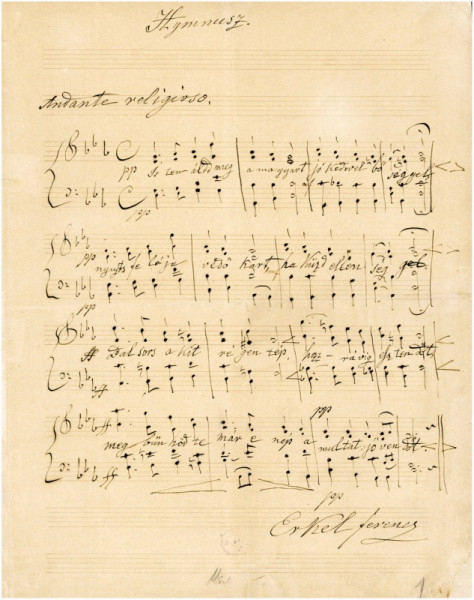 Hymnusz.
Andante religioso.
pp Isten áldd meg a magyart jó kedvel bőséggel
pp
pp nyujts feléje védő kart, ha küzd ellenséggel
pp
ff Bal sors a kit régen tép, hoz-rá víg esztendőt
ff
ff meg bűnhődte már e nép a multat jövendőt
ff
pp
pp
Erkel Ferencz
1